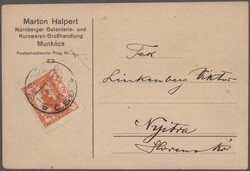 Marton Halpert
Nürnberger Galanterie- und
Kurzwaren-Großhandlung
Munkács
Postscheckkonto Prag Nr.
Tek
Linkenberg Viktor
Nyitra